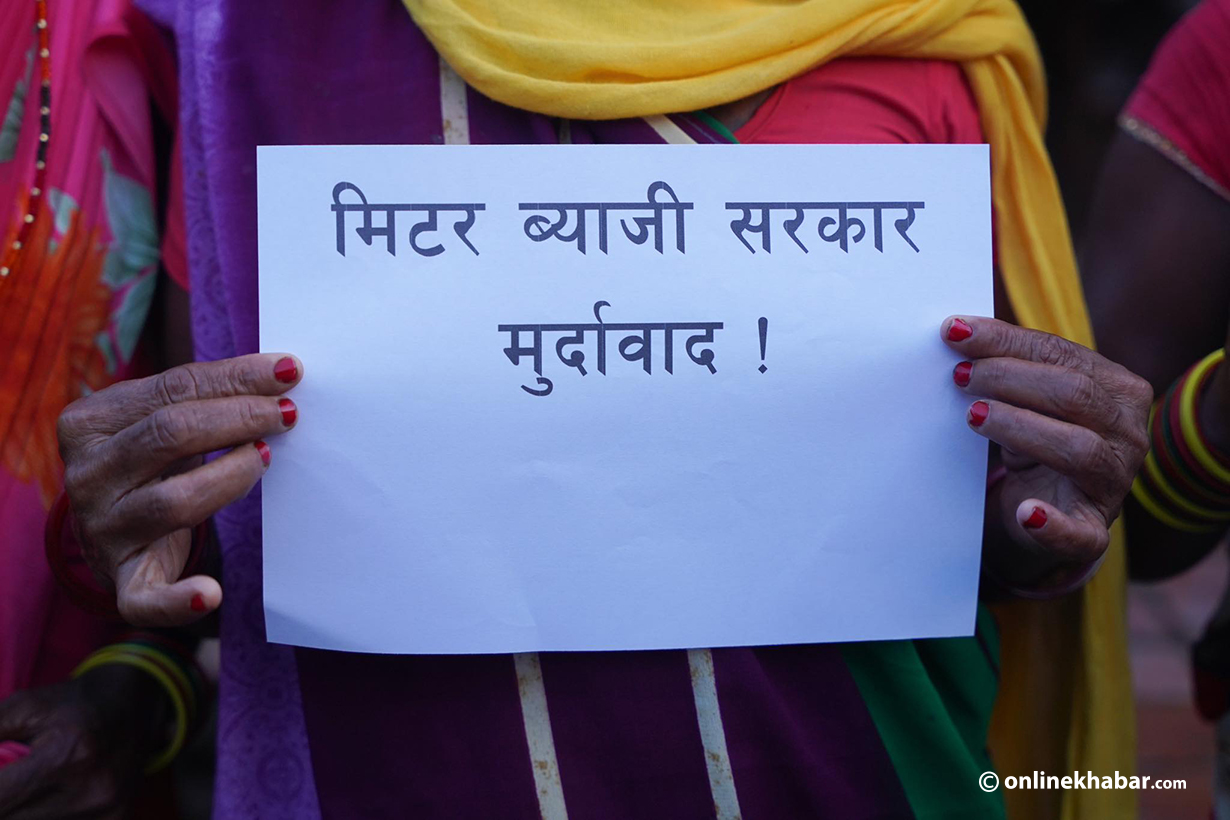 मिटर ब्याजी सरकार
मुर्दावाद !
© onlinekhabar.com